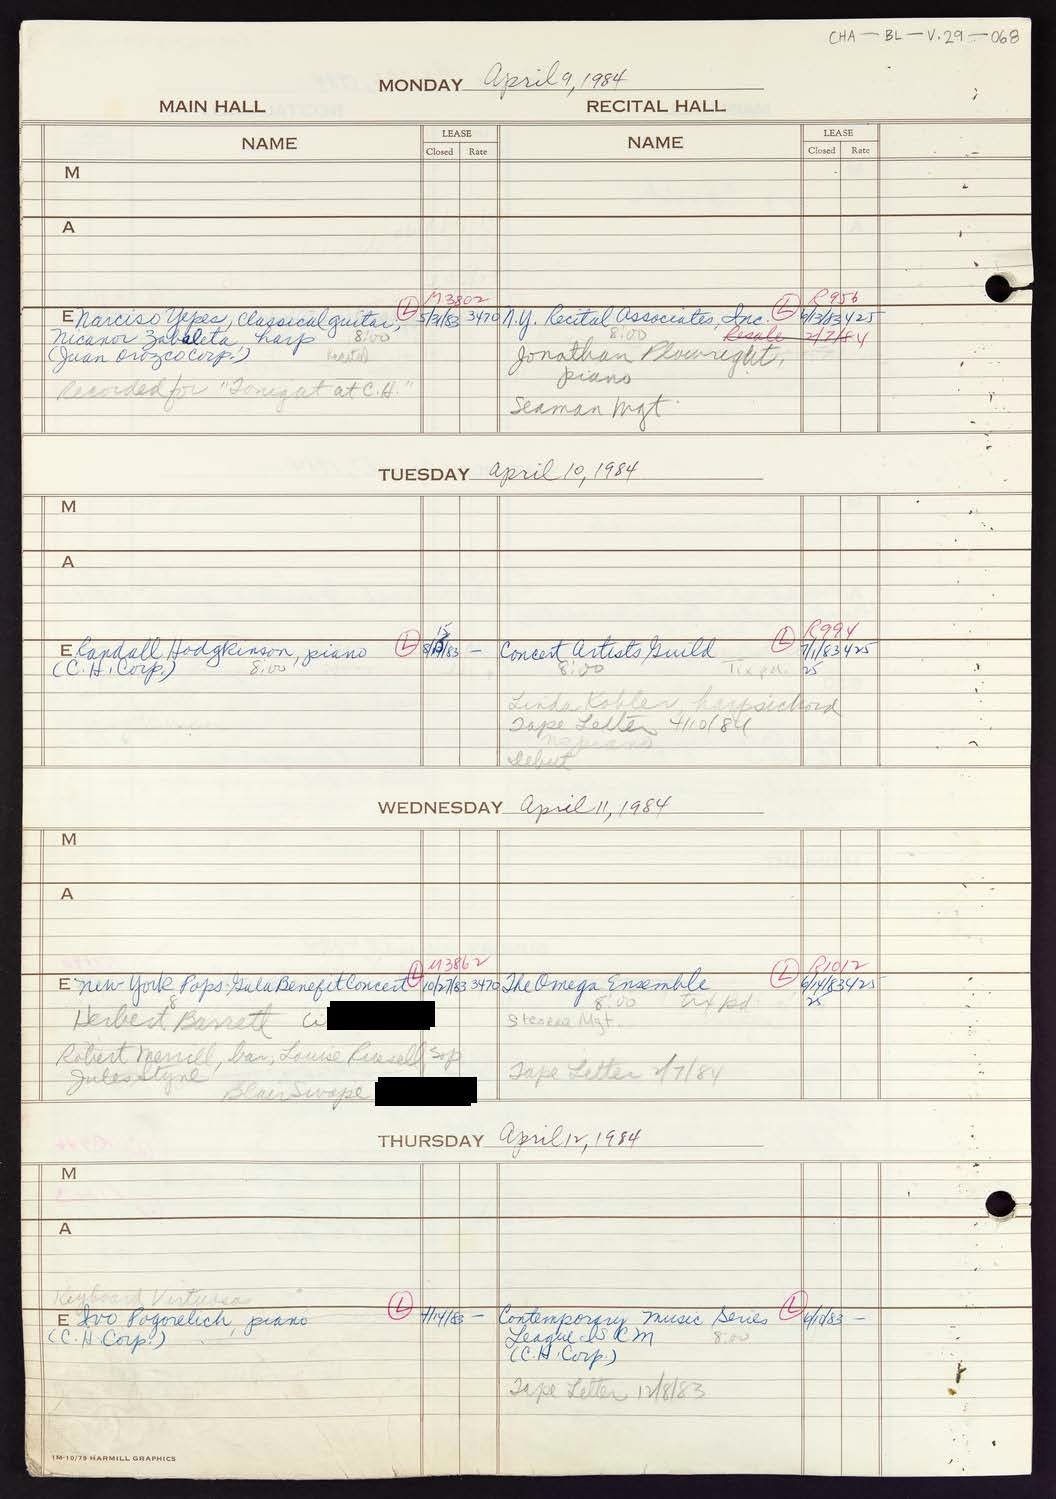 CHA-BL-V.29-068
MONDAY April 9, 1984
MAIN HALL RECITAL HALL
NAME LEASE NAME LEASE
Closed Rate Closed Rate
M
A
M3802 R956
E Narciso Yepes, Classical guitar, L 5/31/83 3470 N.Y. Recital Associates, Inc. L 6/3/83 425
Nicanor Zabaleta, harp 8:00 8:00 Resale 2/7/84
(Juan Orozco Corp.) Jonathan Plowright,
piano
Recorded for "Tonight at C.H."
Seaman Mgt.
TUESDAY April 10, 1984
M
A
15 R994
E Randall Hodgkinson, piano L 8/ /83 — Concert Artists Guild L 7/1/83 425
(C.H. Corp.) 8:00 8:00 Tix pd. 25
Linda Kobler, harpsichord
Tape Letter 4/10/84
no piano
debut
WEDNESDAY April 11, 1984
M
A
M3862 R1012
E New York Pops-Gala Benefit Concert L 10/27/83 3470 The Omega Ensemble L 6/14/83 425
8 8:00 tix pd 25
Herbert Barrett Ci Mgt.
Robert Merrill, bar, Louise Russell, sop
Jules Styne Tape Letter 2/7/84
Blair Swope
THURSDAY April 12, 1984
M
A
Keyboard Virtuosos
E Ivo Pogorelich, piano L 4/14/83 — Contemporary Music Series L 6/1/83 —
(C.H. Corp.) League ISCM 8:00
(C.H. Corp.)
Tape Letter 12/8/83
1M-10/79 HARMILL GRAPHICS